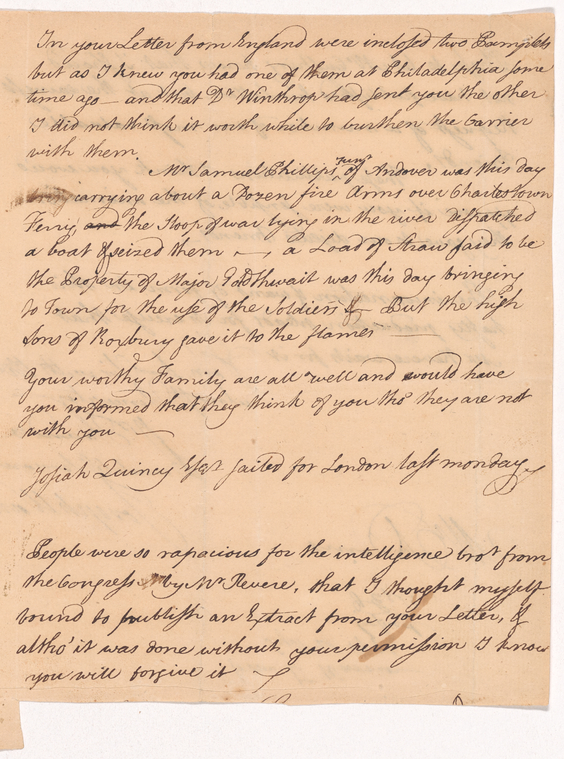 In your Letter from England were inclosed two Pamphlets
but as I knew you had one of them at Philadelphia some
time ago — and that Dr Winthrop had sent you the other
I did not think it worth while to burthen the Carrier
with them.
Mr Samuel Phillips Junr of Andover was this day
carrying about a Dozen fire Arms over Charlestown
Ferry and the Sloop of war lying in the river dispatched
a boat & seized them — a Load of Straw said to be
the Property of Major Goldthwait was this day bringing
to Town, for the use of the Soldiers & But the high
Sons of Roxbury gave it to the flames —
Your worthy Family are all well and would have
you informed that they think of you tho' they are not
with you —
Josiah Quincy Esqr sailed for London last monday
People were so rapacious for the intelligence brot from
the Congress by Mr Revere, that I thought myself
bound to publish an Extract from your Letter, &
altho' it was done without your permission I know
you will forgive it